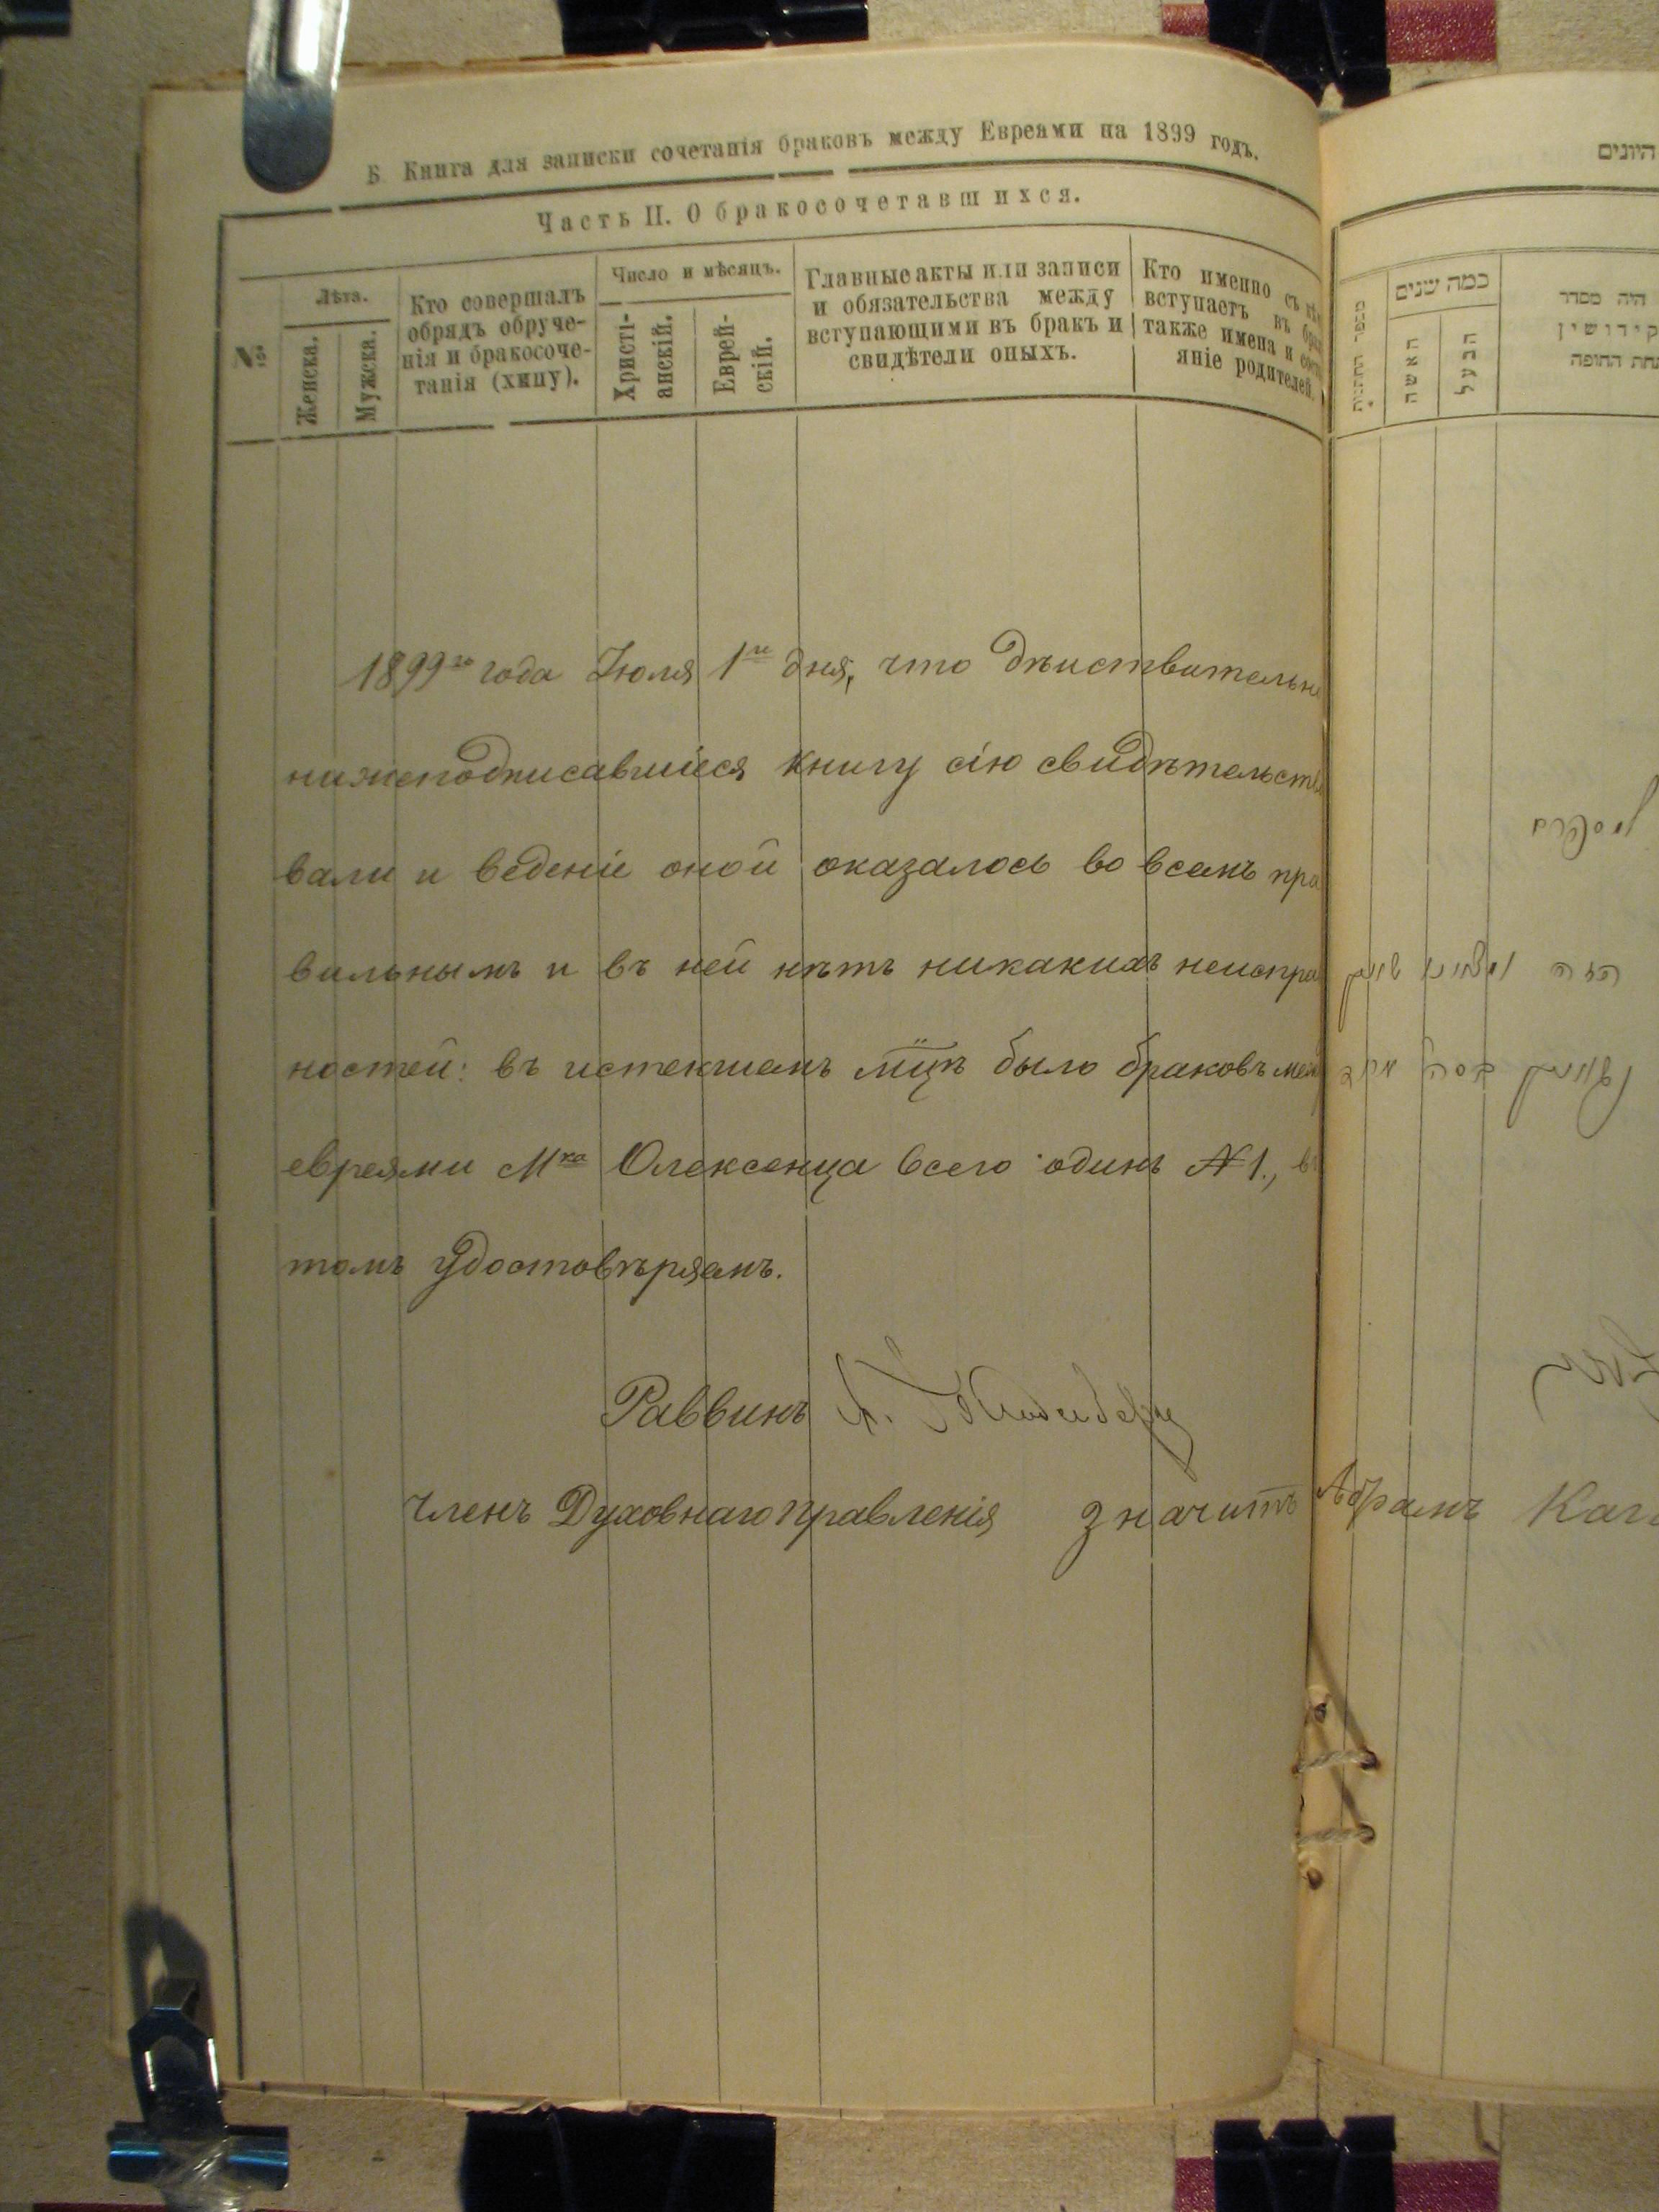 Б. Книга для записки сочетанія браковъ между Евреями на 1899 годъ.
Часть II. О бракосочетавшихся.
№
Лѣта.
Женска.
Мужска.
Кто совершалъ
обрядъ обруче-
нія и бракосоче-
танія (хипу).
Число и мѣсяцъ.
Христі-
анскій.
Еврей-
скій.
Главные акты или записи
и обязательства между
вступающими въ бракъ и
свидѣтели оныхъ.
Кто именно съ
вступаетъ въ
также имена и
яніе родителей.
1899го года Іюля 1го дня, что дѣиствительн
нижеподписавшіеся книгу сію свидѣтельство
вали и веденіе оной оказалось во всемъ пра
вильнымъ и въ ней нѣтъ никакихъ неиспра
ностей: въ истекшемъ мцѣ было браковъ меж
евреями Мка Олексенца всего одинъ №1., въ
томъ удостовѣряемъ.
Раввинъ
Членъ Духовнаго правленія значитъ Абрамъ
היונים
מספר החתונות
כמה שנים
האשה
הבעל
היה מסדר
קידושין
תחת החופה